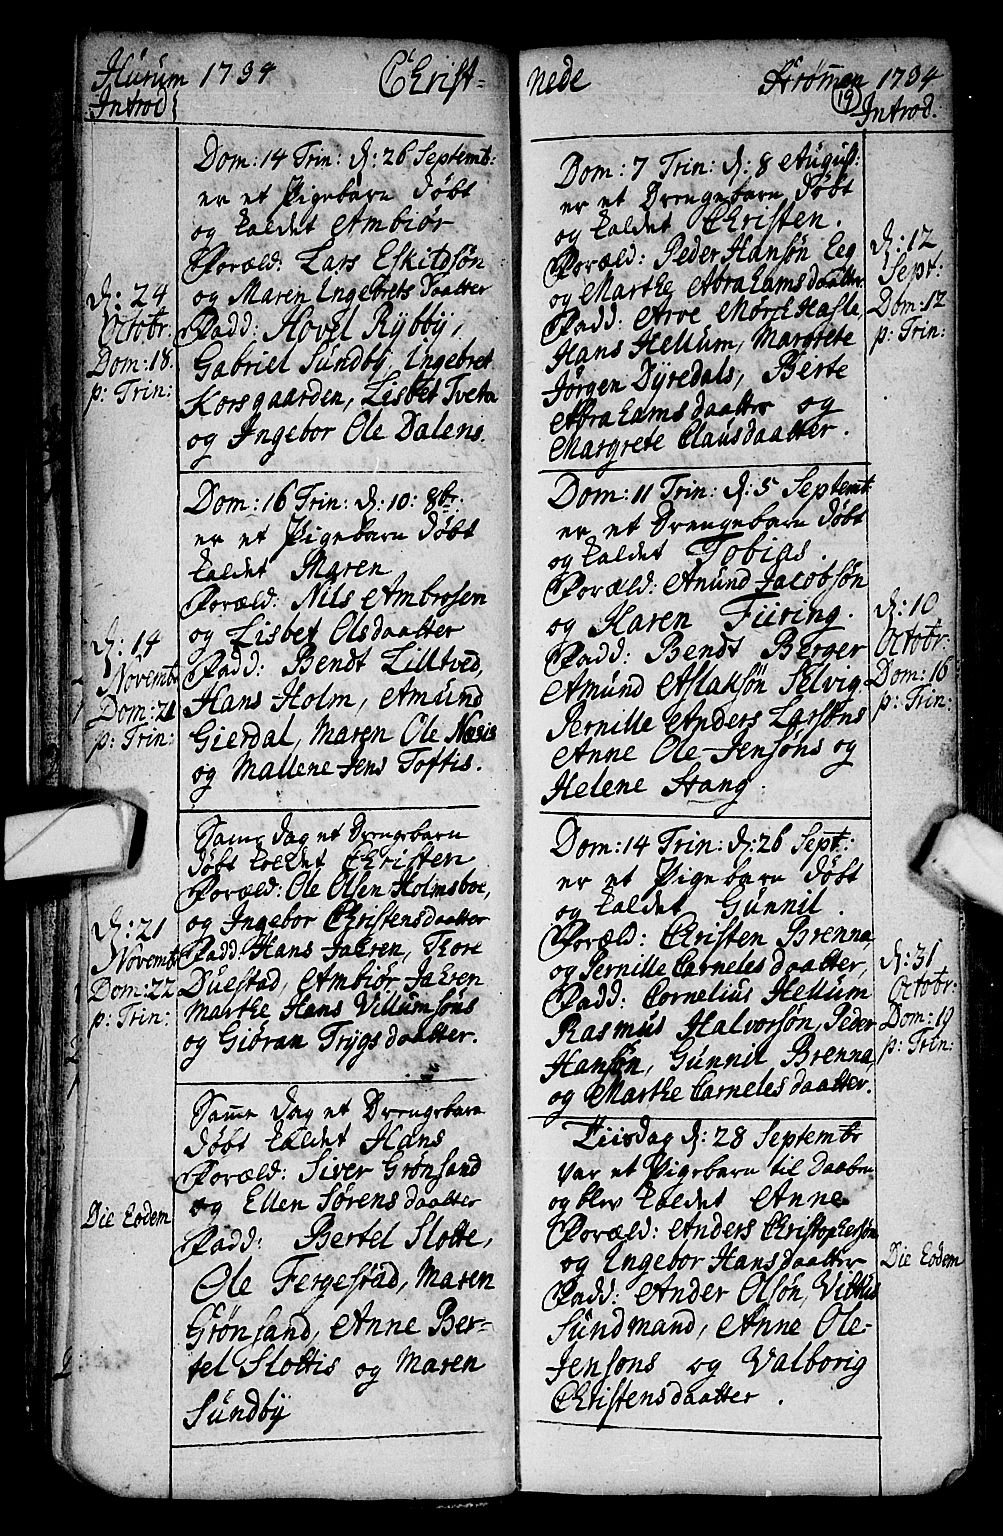 Hurum 1734 Christ-
Introd:
Dom: 14 Trin: d: 26 Septemb:
er et Pigebarn døbt
og kaldet Ambiør
Foræld: Lars Eskildsøn
og Maren Ingebrets daatter
Fadd: Hovel Rÿbbÿ,
Gabriel Sundbÿ, Ingebret
Korsgaarden, Lisbet Tveta
og Ingebor Ole Dalens.
d: 24
Octobr:
Dom: 18.
p: Trin:
Dom: 16 Trin: d: 10: 8br:
er et Pigebarn døbt
kaldet Maren
Foræld: Nils Ambrosen
og Lisbet Olsdaatter
Fadd: Bendt Lilltved,
Hans Holm, Amund
Gierdal, Maren Ole Næsis
og Mallene Jens Toftis.
d: 14
Novembr
Dom: 21
p: Trin:
Samme dag et Drengebarn
døbt kaldet Christen
Foræld: Ole Olsen Holmsboe,
og Ingebor Christensdaatter
Fadd: Hans Jahren, Thore
Duestad, Ambiør Jahren
Marthe Hans Villumsøns
og Giøran Trÿgsdaatter.
d: 21
Novembr
Dom: 22
p: Trin:
Samme dag et Drengebarn
døbt kaldet Hans
Foræld: Siver Grønsand
og Ellen Sørensdaatter
Fadd: Bertel Slotte,
Ole Fergestad, Maren
Grønsand, Anne Ber-
tel Slottis og Maren
Sundbÿ
Die Eodem
nede Strømmen 1734
19
Introd:
Dom: 7 Trin: d: 8 August:
er et Drengebarn døbt
og kaldet Christen.
Foræld: Peder Hansøn Eeg
og Marthe Abrahamsdaatter
Fadd: Arve Mørch Hasla,
Hans Hellum, Margrete
Jørgen Dÿredals, Berte
Abrahamsdaatter og
Margrete Clausdaatter.
d: 12
Sept:
Dom: 12
p: Trin:
Dom: 11 Trin: d: 5 Septemb:
er et Drengebarn døbt
og kaldet Tobias.
Foræld: Anund Jacobsøn
og Karen Fiiring.
Fadd: Bendt Berger
Amund Aslaksøn Selvig
Pernille Anders Larsøns
Anne Ole Jensøns og
Helene Stang.
d: 10
Octobr:
Dom: 16
p: Trin:
Dom: 14 Trin: d: 26 Sept:
er et Pigebarn døbt
og kaldet Gunnil.
Foræld: Christen Brenna
og Pernille Carnelesdaatter,
Fadd: Cornelius Hellum
Rasmus Halvorsøn, Peder
Hansøn, Gunnil Brenna,
og Marthe Carnelesdaatter.
d: 31
Octobr:
Dom: 19
p: Trin:
Tiisdag d: 28 Septembr
var et Pigebarn til daaben
og blev kaldet Anne
Foræld: Anders Christophersøn
og Ingebor Hansdaatter
Fadd: Ander Olsøn, Vittus
Sundmand, Anne Ole-
Jensøns og Valborig
Christensdaatter.
Die Eodem